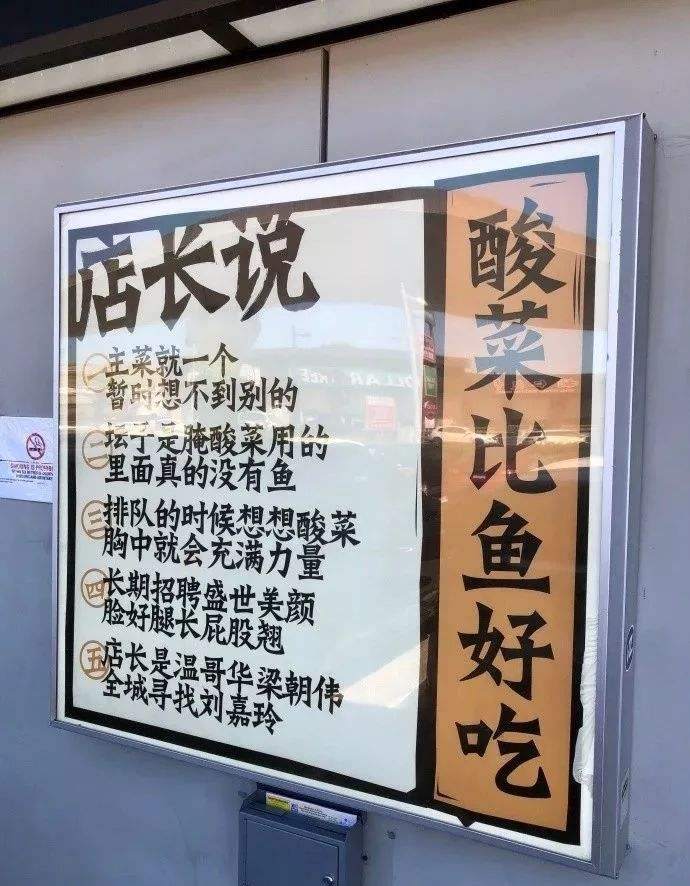 店长说
一 主菜就一个
暂时想不到别的
二 坛子是腌酸菜用的
里面真的没有鱼
三 排队的时候想想酸菜
胸中就会充满力量
四 长期招聘盛世美颜
脸好腿长屁股翘
五 店长是温哥华梁朝伟
全城寻找刘嘉玲
酸菜比鱼好吃
SMOKING IS PROHIBITED